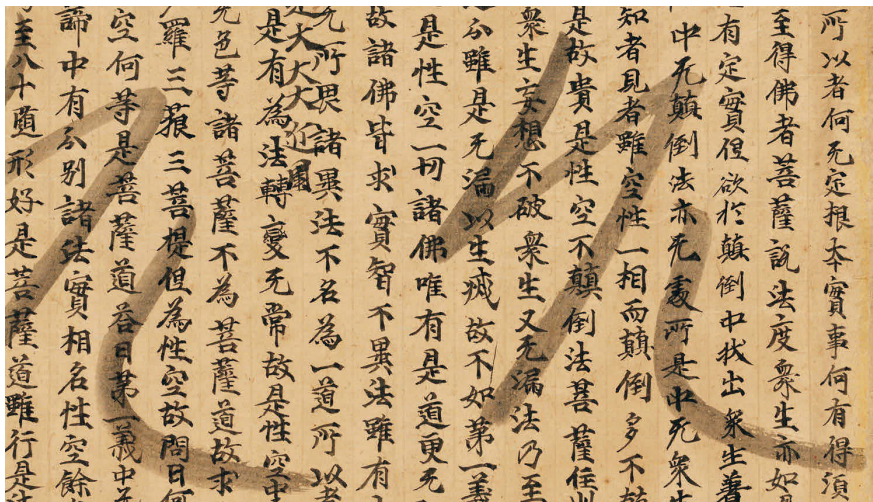 所以者何无定根本實事何有得須
至得佛者菩薩説法度衆生亦如
有定實但欲於顛倒中拔出衆生著
中无顛倒法亦无處所是中无衆生
知者見者雖空性一相而顛倒多不
是故貴是性空不顛倒法菩薩住
衆生妄想不破衆生又无漏法乃至
分雖是无漏以生滅故不如第一義
是性空一切諸佛唯有是道更无
故諸佛皆求實智不異法雖有
无所畏諸異法不名為一道所以者
是大大大近
是有為法轉變无常故是性空中
无色等諸菩薩不為菩薩道故求
羅三藐三菩提但為性空故問曰何
空何等是菩薩道答曰第一義中
諦中有分別諸法實相名性空餘
至八十随形好是菩薩道雖行是